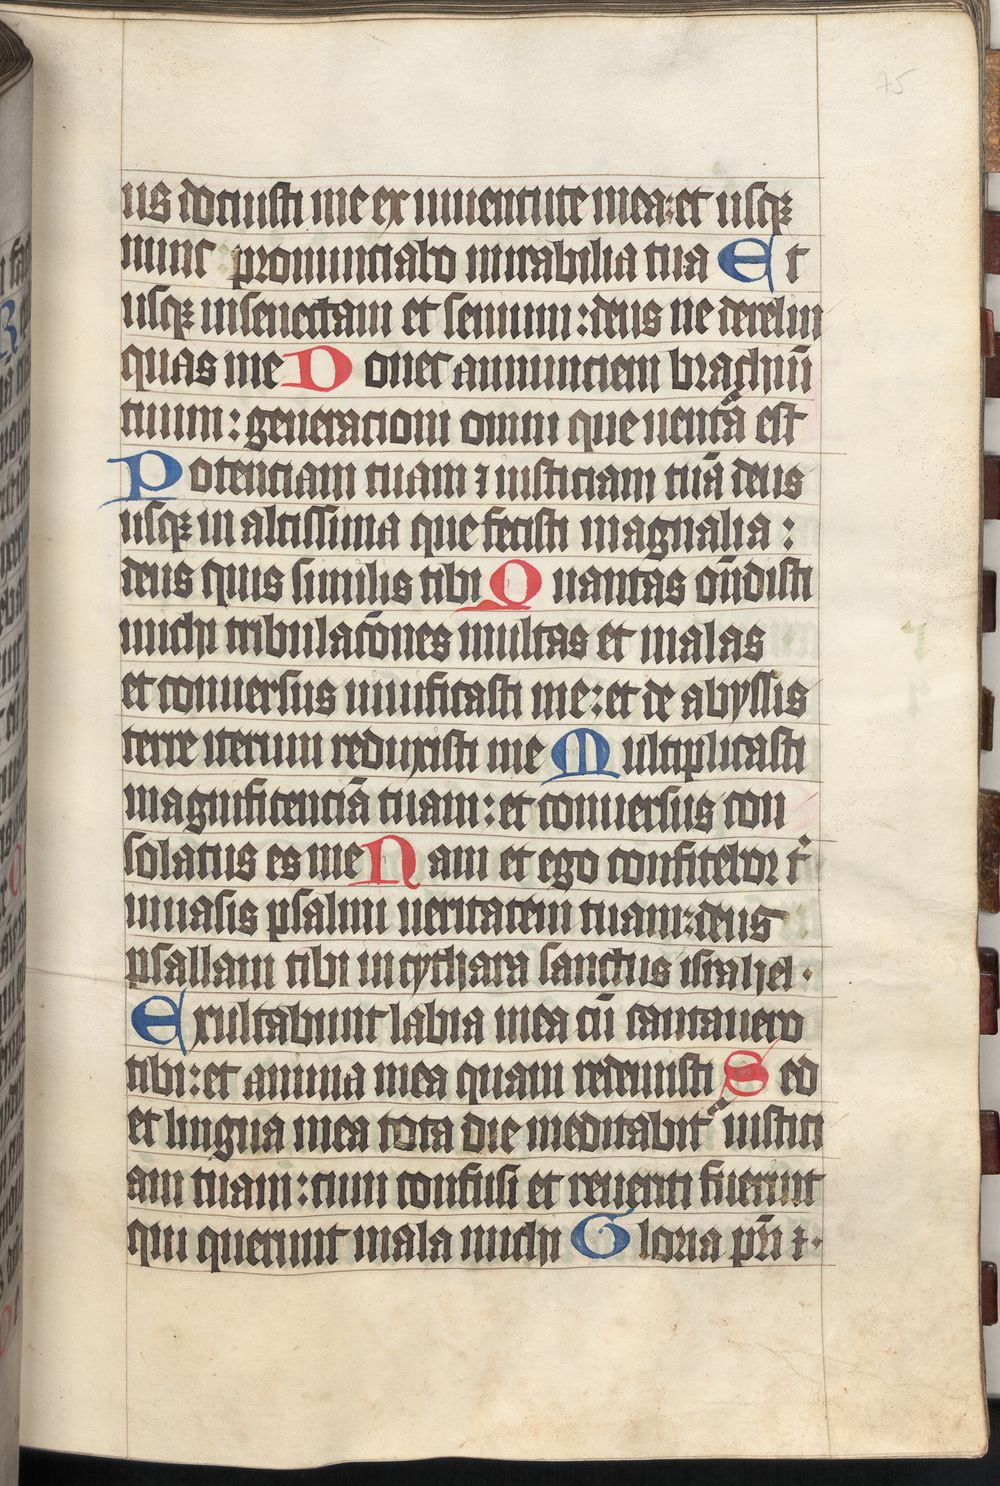 75
us docuisti me ex iuuentute mea: et usqꝫ
nunc pronunciabo mirabilia tua Et
usqꝫ in senectam et senium: deus ne derelin
quas me Donec annunciem brachiū
tuum: generacioni omni que uentā est
Potenciam tuam ⁊ iusticiam tuā deus
usqꝫ in altissima que fecisti magnalia:
deus quis similis tibi Quantas on̄disti
michi tribulac̄ones multas et malas
et conuersus uiuificasti me: et de abyssis
terre iterum reduxisti me Multiplicasti
magnificenciā tuam: et conuersus con
solatus es me Nam et ego confitebor t
in uasis psalmi ueritatem tuam: deus
psallam tibi in cythara sanctus israhel.
Exultabunt labia mea cū cantauero
tibi: et anima mea quam redemisti Sed
et lingua mea tota die meditabit iustici
am tuam: cum confusi et reuerti fuerint
qui querunt mala michi Gloria pr̄i ⁊.